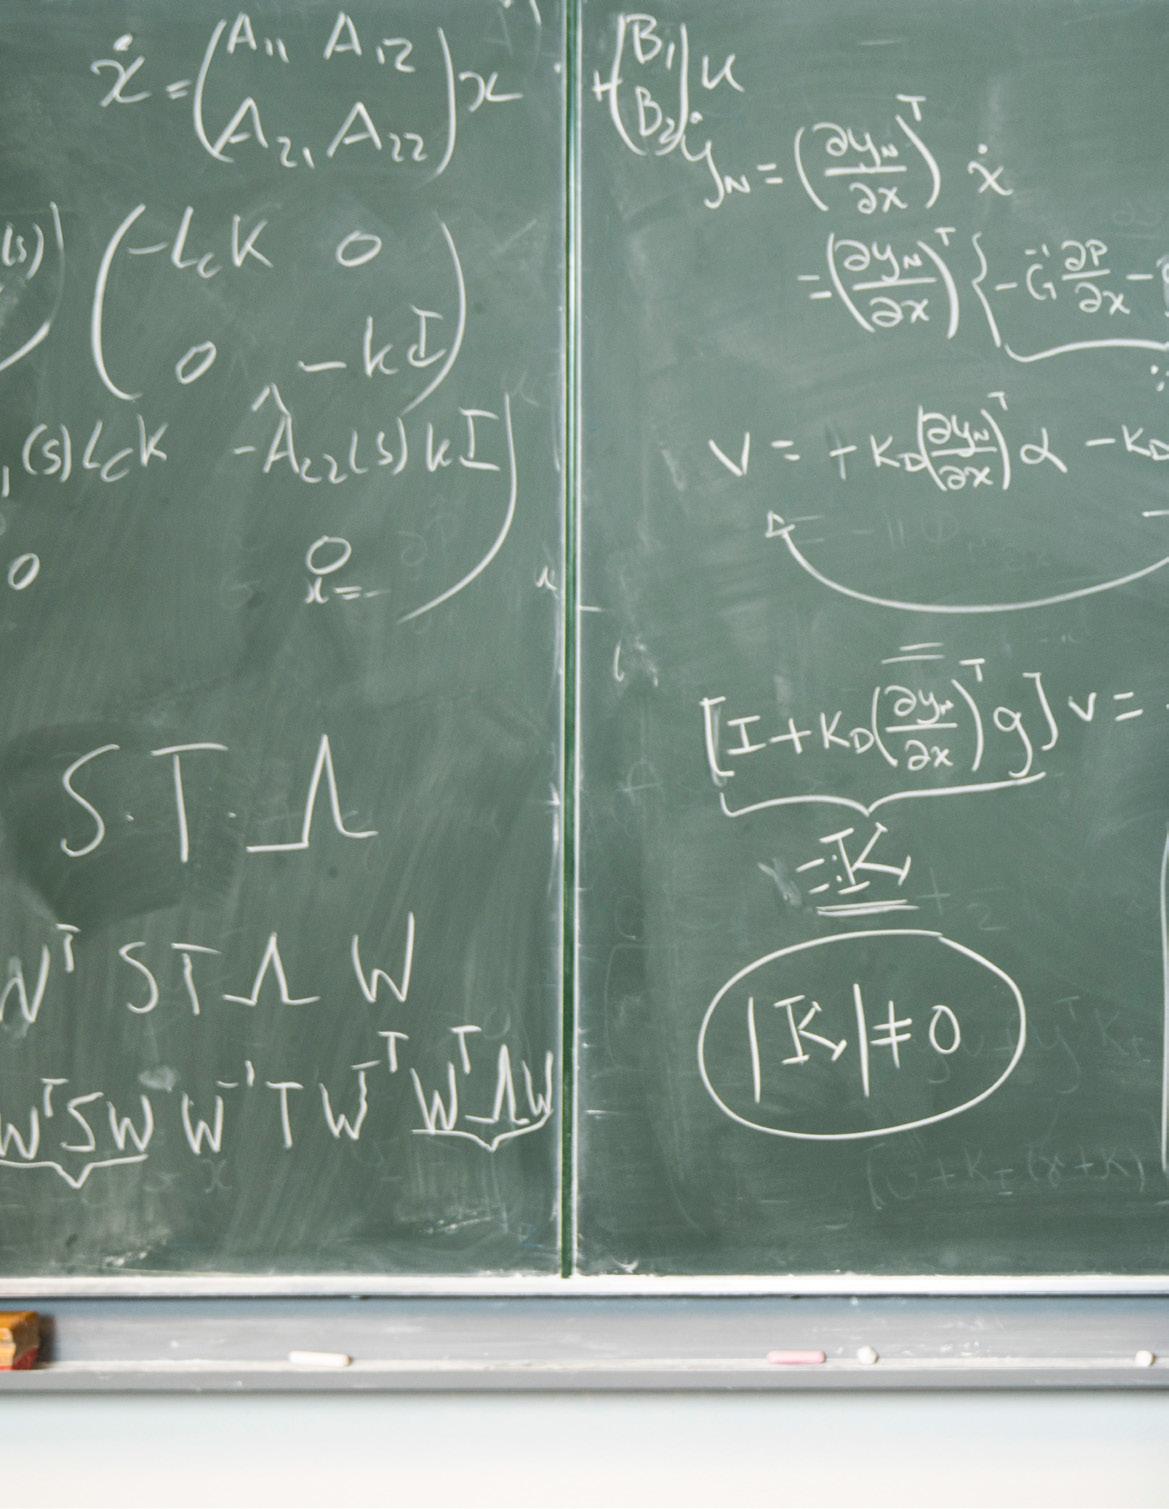 ẋ = (A₁₁ A₁₂
A₂₁ A₂₂) x + (B₁
B₂) u
(s)) (-L_c K 0
0 -kI)
₁(s)L_c K -Â₂₂(s)kI)
0 0
x=-
S·T·Λ
Wᵀ S T Λ W
WᵀSW W⁻¹ T W⁻ᵀ WᵀΛW
ẏ_N = (∂y_N/∂x)ᵀ ẋ
= (∂y_N/∂x)ᵀ {-G⁻¹ ∂P/∂x -
v = + K_D(∂y_N/∂x)ᵀ α - K_D
[I + K_D(∂y_N/∂x)ᵀ g] v =
=: K
|K| ≠ 0